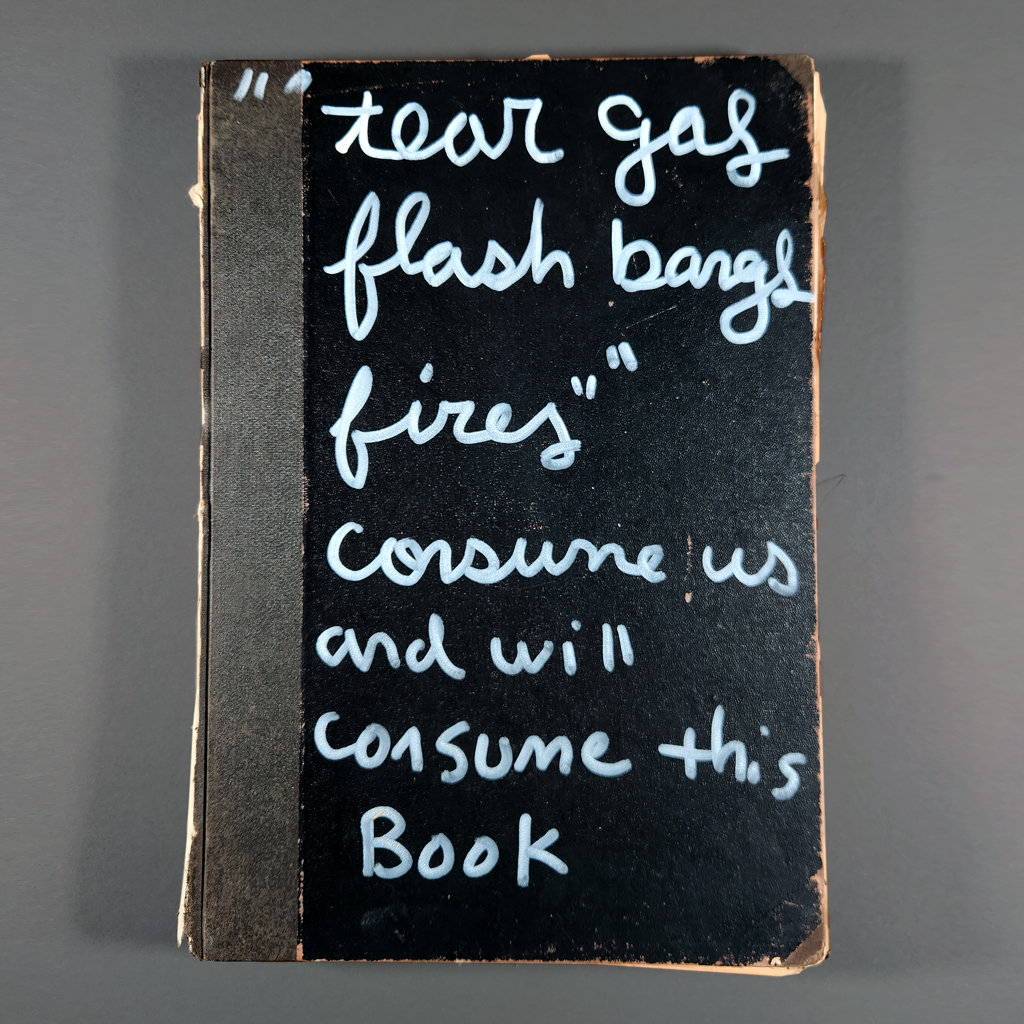 "" tear gas
flash bangs
fires""
consume us
and will
consume this
Book